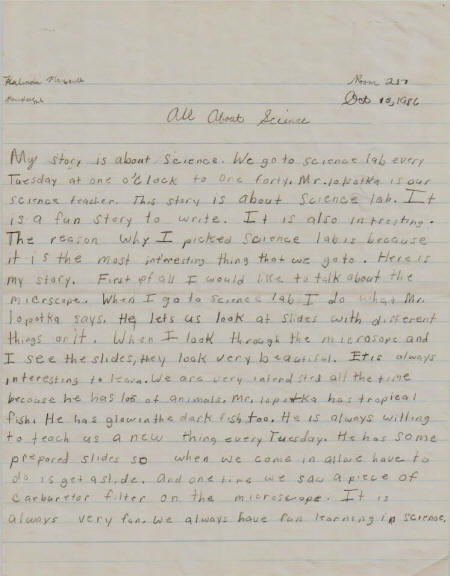 Room 217
Oct 15, 1986
All About Science
My story is about science. We go to science lab every
Tuesday at one o'clock to one forty. Mr. lopotka is our
science teacher. This story is about science lab. It
is a fun story to write. It is also intresting.
The reason why I picked science lab is because
it is the most interesting thing that we go to. Here is
my story. First of all I would like to talk about the
micrscope. When I go to science lab I do what Mr.
lopotka says. He lets us look at slides with different
things on it. When I look through the microsope and
I see the slides, they look very beautiful. It is always
interesting to learn. We are very all the time
because he has lots of animals. Mr. lopotka has tropical
fish. He has glow in the dark fish too. He is always willing
to teach us a new thing every Tuesday. He has some
prepared slides so when we come in all we have to
do is get a slide. And one time we saw a piece of
carburetor filter on the microscope. It is
always very fun. We always have fun learning in science.